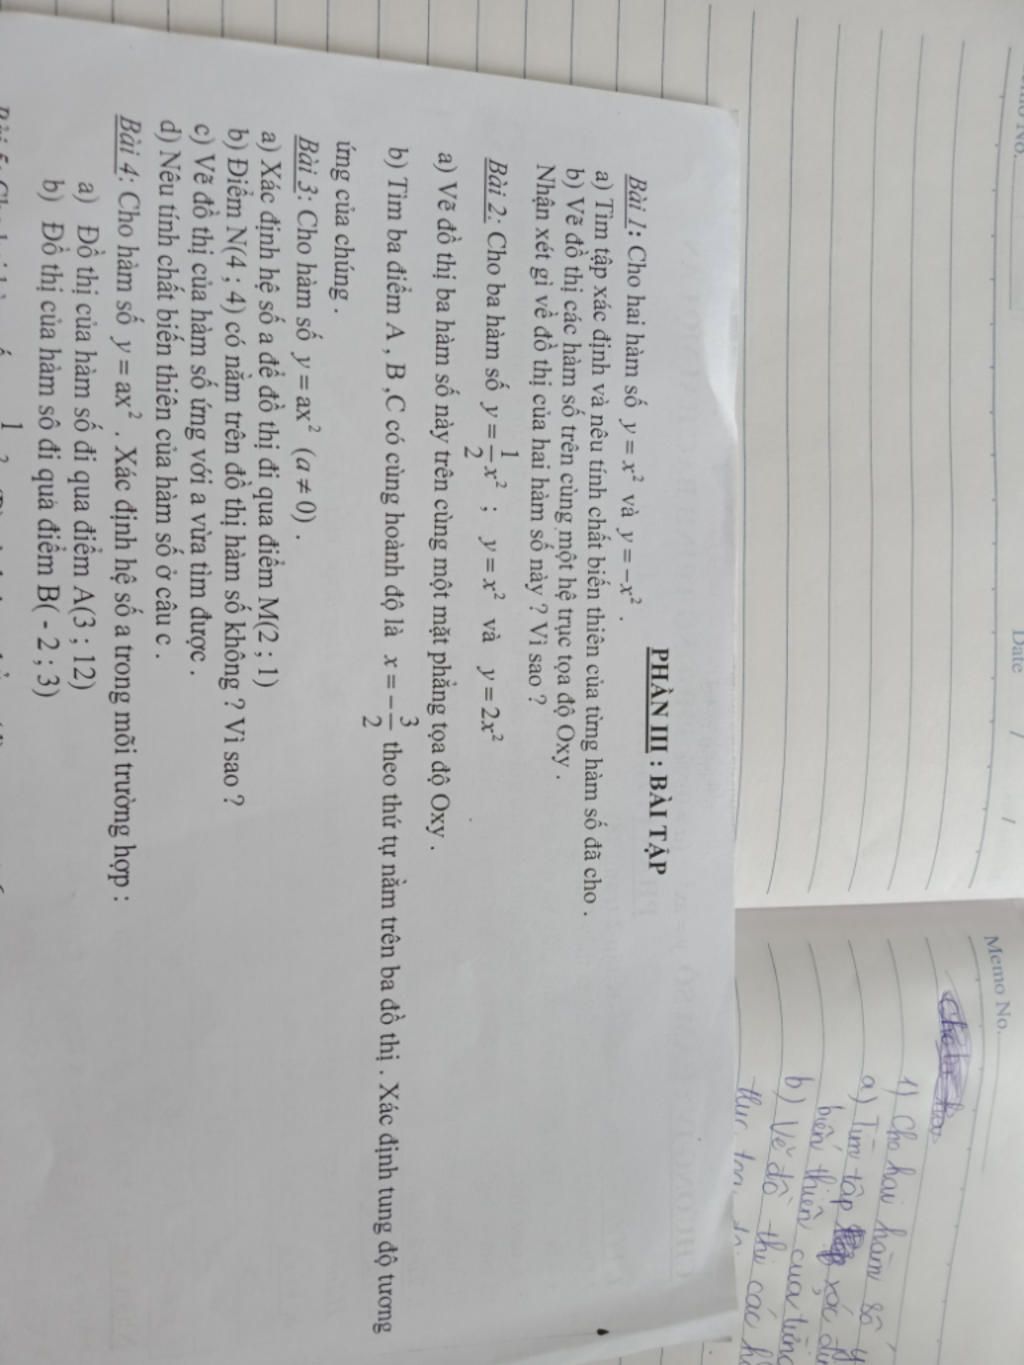 Memo No.
Date / /
Memo No.
1) Cho hai hàm số y
a) Tìm tập xác đi
biến thiên của từng
b) Vẽ đồ thị các h
PHẦN III : BÀI TẬP
Bài 1: Cho hai hàm số y = x² và y = −x² .
a) Tìm tập xác định và nêu tính chất biến thiên của từng hàm số đã cho .
b) Vẽ đồ thị các hàm số trên cùng một hệ trục tọa độ Oxy .
Nhận xét gì về đồ thị của hai hàm số này ? Vì sao ?
Bài 2: Cho ba hàm số y = 1/2 x² ; y = x² và y = 2x²
a) Vẽ đồ thị ba hàm số này trên cùng một mặt phẳng tọa độ Oxy .
b) Tìm ba điểm A , B ,C có cùng hoành độ là x = − 3/2 theo thứ tự nằm trên ba đồ thị . Xác định tung độ tương
ứng của chúng .
Bài 3: Cho hàm số y = ax² (a ≠ 0) .
a) Xác định hệ số a để đồ thị đi qua điểm M(2 ; 1)
b) Điểm N(4 ; 4) có nằm trên đồ thị hàm số không ? Vì sao ?
c) Vẽ đồ thị của hàm số ứng với a vừa tìm được .
d) Nêu tính chất biến thiên của hàm số ở câu c .
Bài 4: Cho hàm số y = ax² . Xác định hệ số a trong mỗi trường hợp :
a) Đồ thị của hàm số đi qua điểm A(3 ; 12)
b) Đồ thị của hàm số đi qua điểm B( - 2 ; 3)